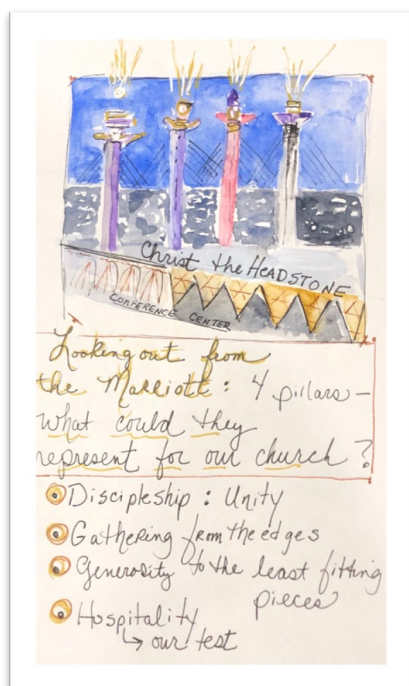 Christ the HEADSTONE
CONFERENCE CENTER
Looking out from
the Marriott: 4 pillars –
what could they
represent for our church?
Discipleship : Unity
Gathering from the edges
Generosity to the least fitting
pieces
Hospitality
↳ our test